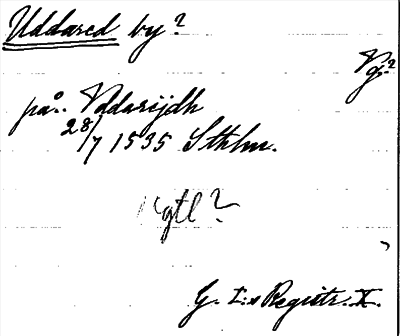 Uddared by?
Vg.?
på.. Vdarijdh
28/7 1535 Sthlm.
gtl?
G. I:s Registr. X.